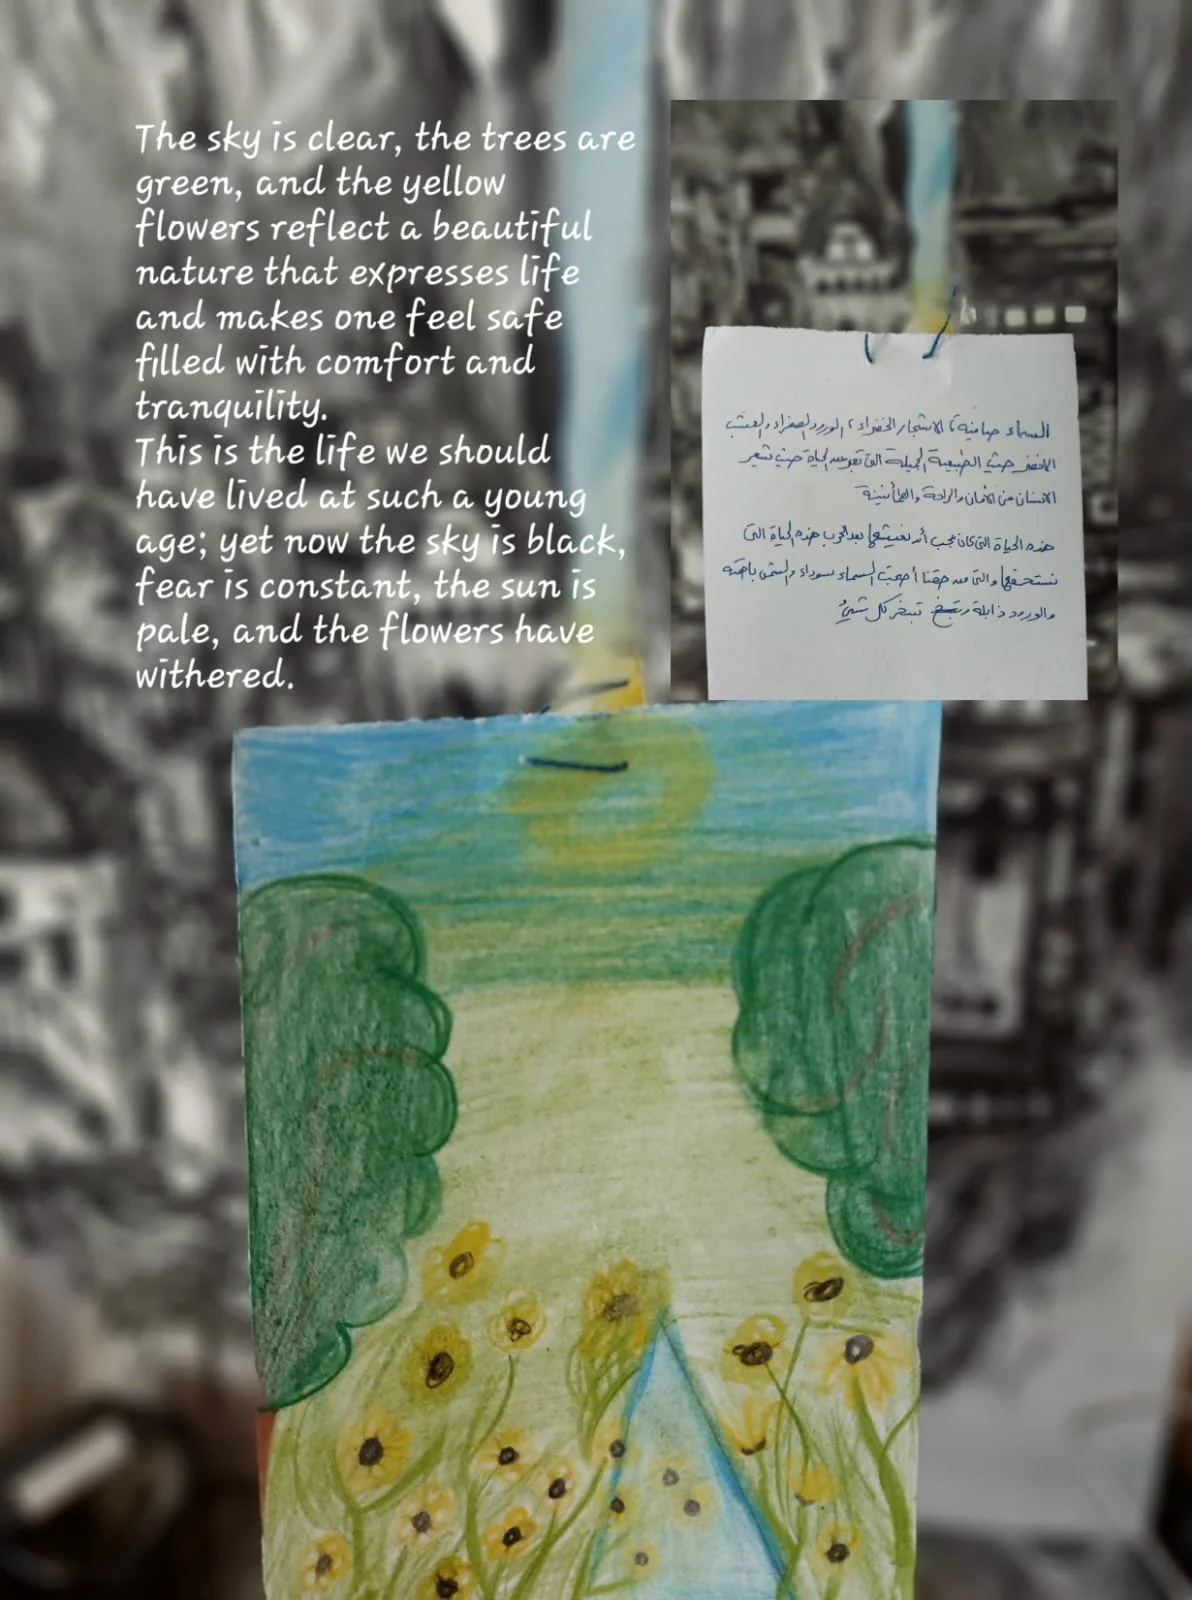 The sky is clear, the trees are
green, and the yellow
flowers reflect a beautiful
nature that expresses life
and makes one feel safe
filled with comfort and
tranquility.
This is the life we should
have lived at such a young
age; yet now the sky is black,
fear is constant, the sun is
pale, and the flowers have
withered.
السماء صافية، الاشجار الخضراء، الورود الصفراء والعشب
الاخضر حيث الطبيعة الجميلة التي تعبر عن الحياة حيث تشعر
الانسان من الأمان والراحة والطأنينة
هذه الحياة التي كان يجب أن نعيشها بعد الحرب هذه الحياة التي
نستحقها والتي من حقنا أصبحت السماء سوداء والشمس باهتة
والورود ذابلة تبخر كل شيئ